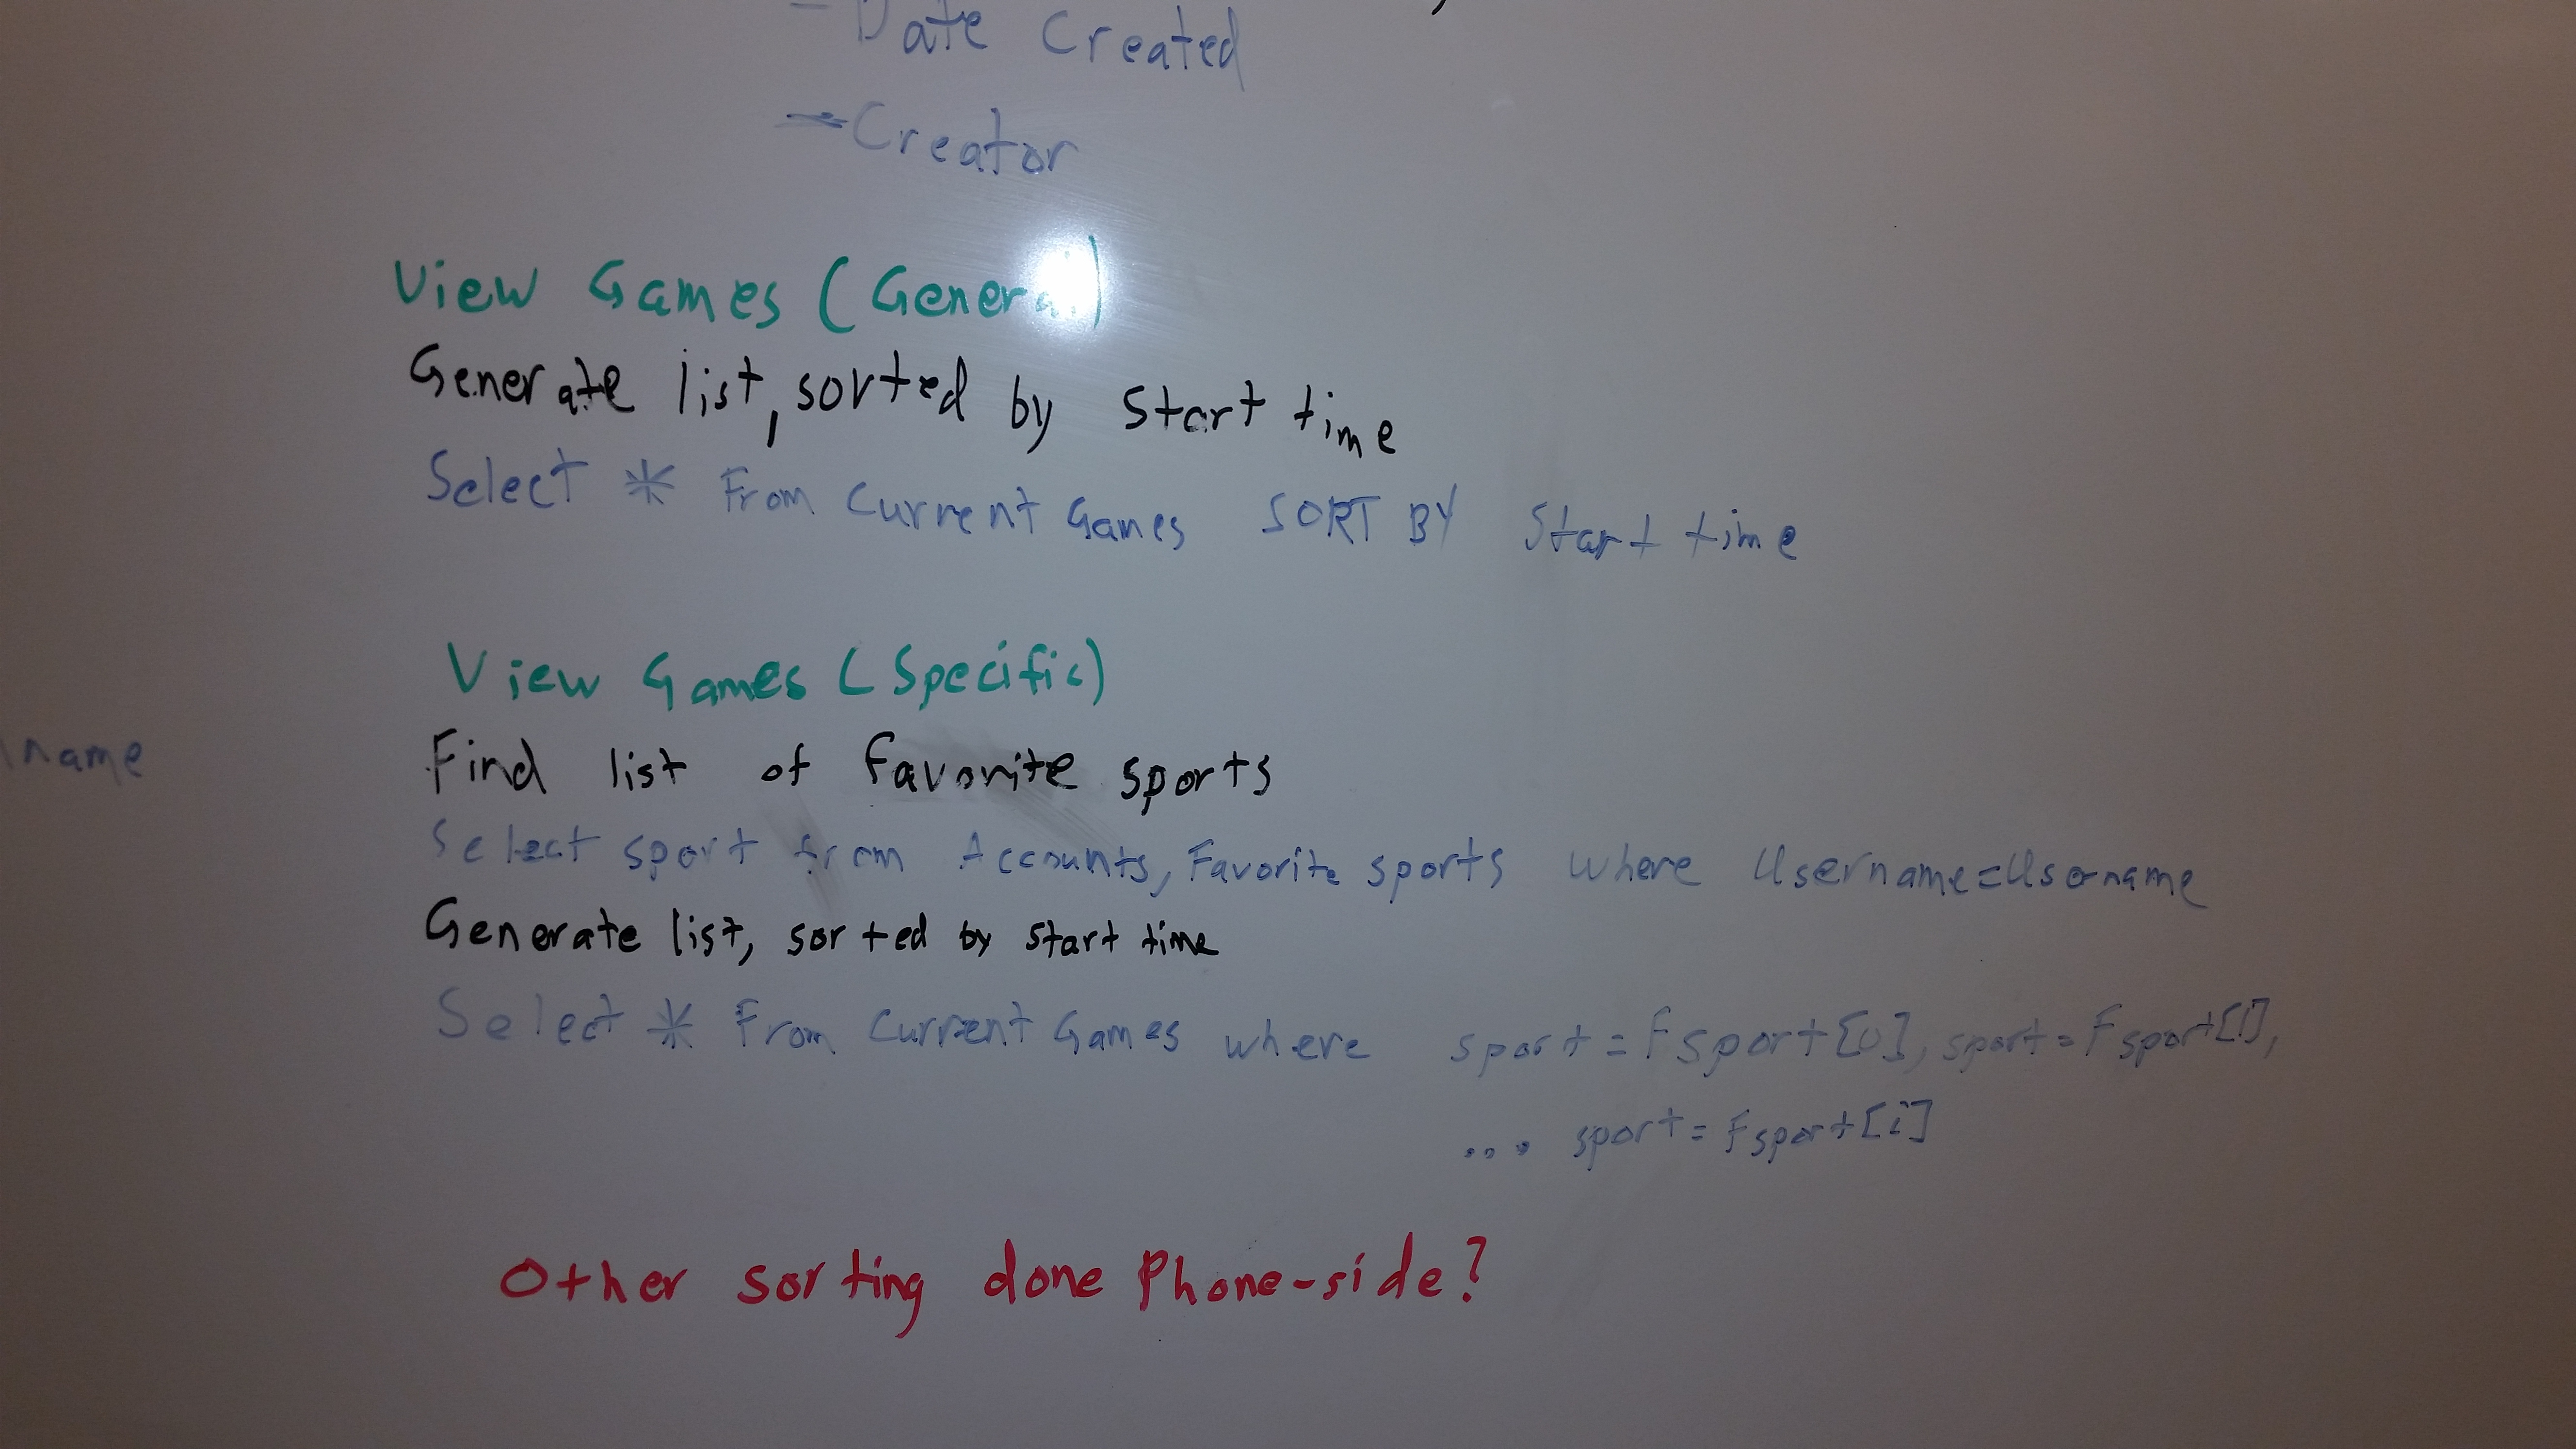 - Date Created
- Creator
View Games (General)
Generate list, sorted by start time
Select * From Current Games SORT BY Start time
View Games (Specific)
name
Find list of favorite sports
Select sport from Accounts, Favorite sports where Username=Username
Generate list, sorted by start time
Select * From Current Games where sport = Fsport[0], sport = Fsport[1],
... sport = Fsport[i]
Other sorting done Phone-side?